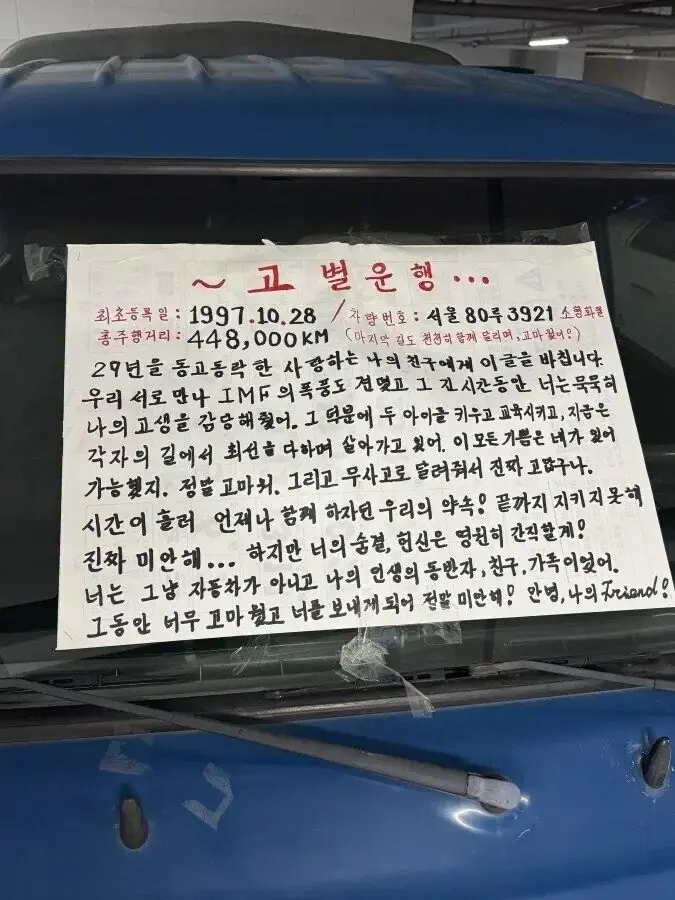 ~ 고 별 운 행 ...
최초등록일 : 1997.10.28 / 차량번호 : 서울 80루 3921 소형화물
총주행거리 : 448,000KM (마지막 길도 천천히 함께 달리며, 고마웠어!)
29년을 동고동락 한 사랑하는 나의 친구에게 이 글을 바칩니다.
우리 서로 만나 IMF의 폭풍도 견뎠고 그 긴 시간동안 너는 묵묵히
나의 고생을 감당해 줬어. 그 덕분에 두 아이를 키우고 교육시키고, 지금은
각자의 길에서 최선을 다하며 살아가고 있어. 이 모든 기쁨은 네가 있어
가능했지. 정말 고마워. 그리고 무사고로 달려줘서 진짜 고맙구나.
시간이 흘러 언제나 함께 하자던 우리의 약속! 끝까지 지키지 못해
진짜 미안해... 하지만 너의 숨결, 헌신은 영원히 간직할게!
너는 그냥 자동차가 아니고 나의 인생의 동반자, 친구, 가족이었어.
그동안 너무 고마웠고 너를 보내게 되어 정말 미안해! 안녕, 나의 Friend!